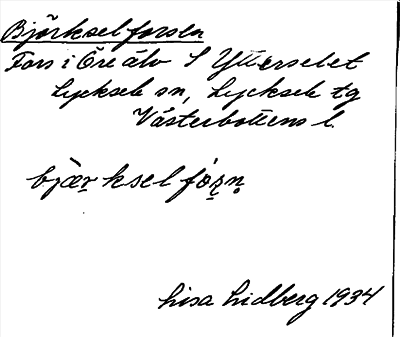 Björkselforsen
Fors i Öre älv S Ytterselet
Lycksele sn, Lycksele tg
Västerbottens l.
bjær̥ksel fórn̥
Lisa Lidberg 1934